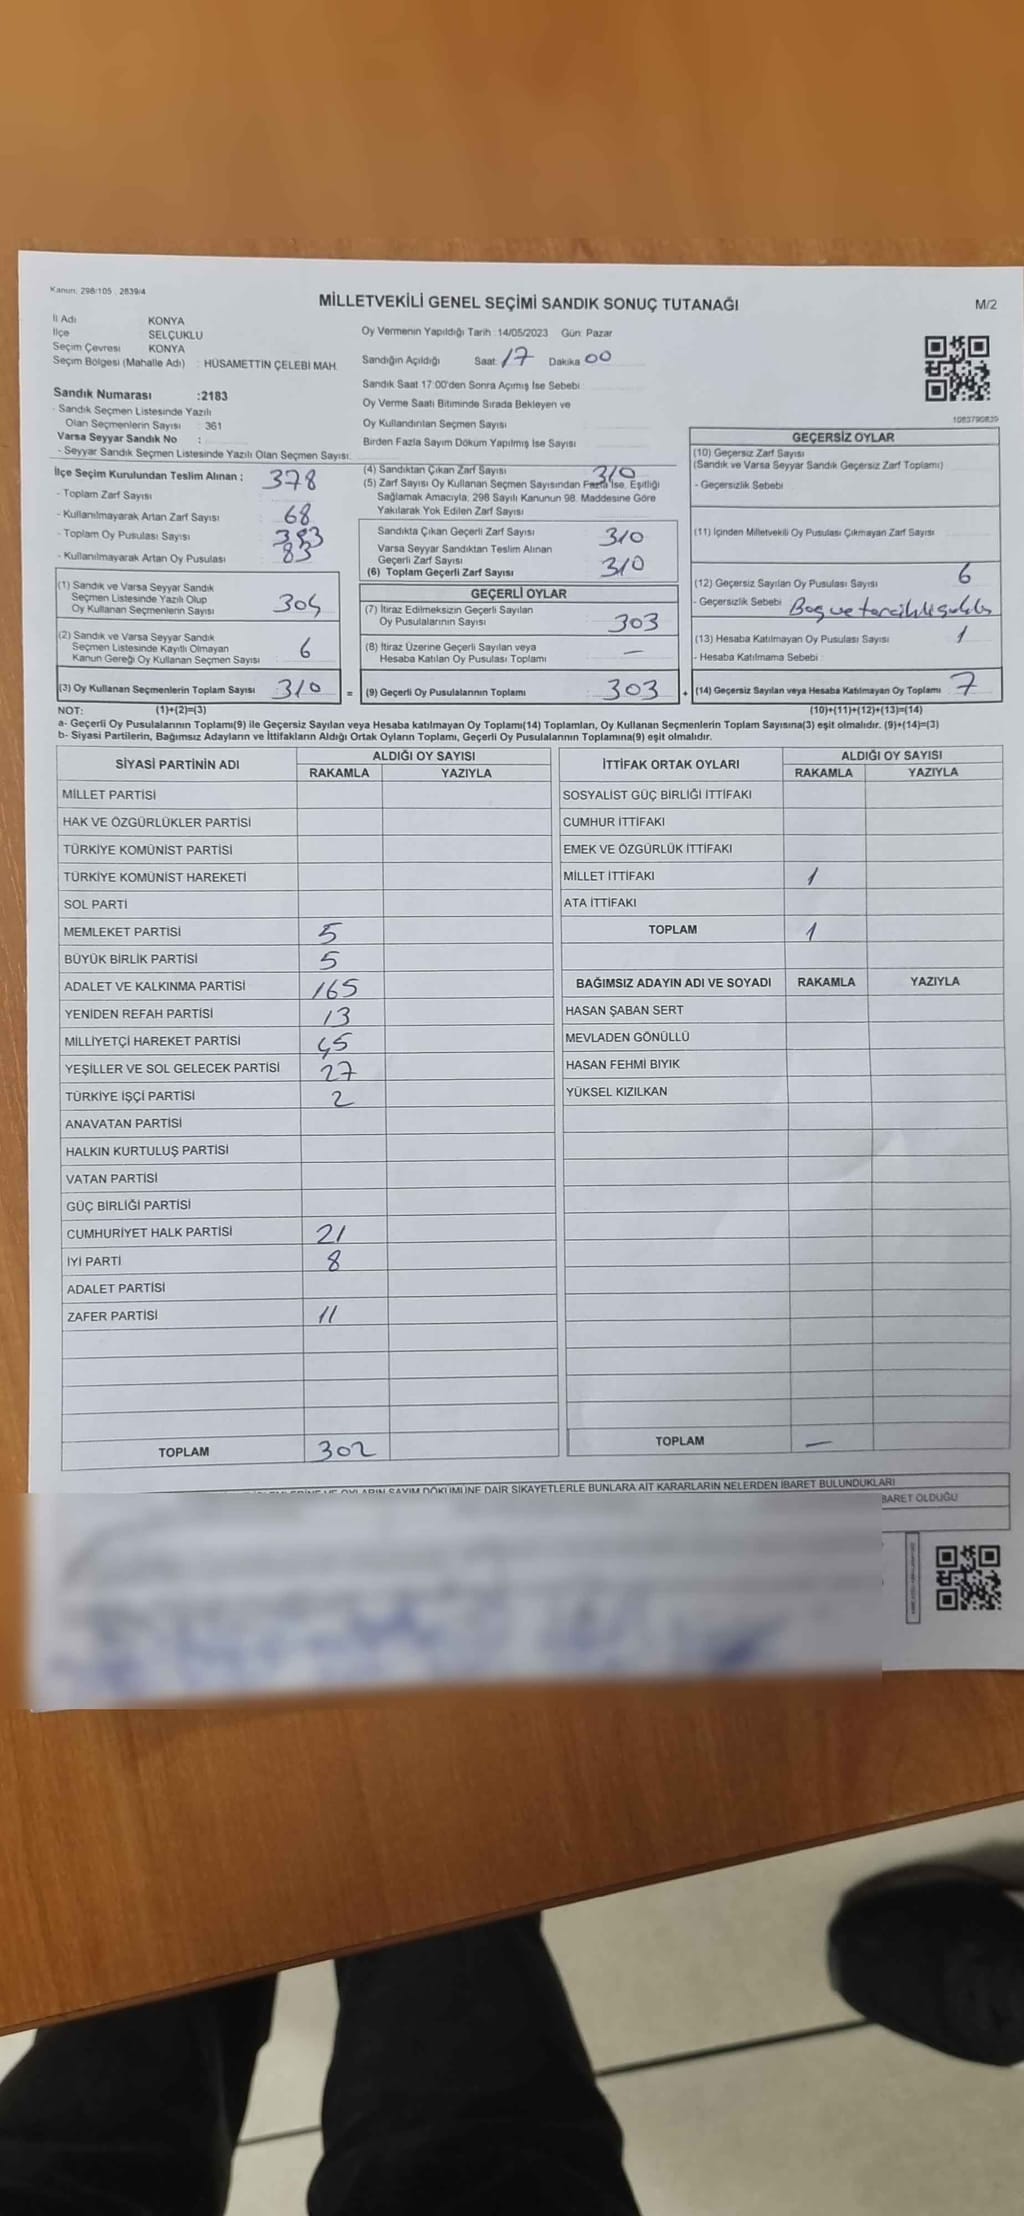 Kanun: 298/105 2839/4
MİLLETVEKİLİ GENEL SEÇİMİ SANDIK SONUÇ TUTANAĞI
M/2
İl Adı KONYA
İlçe SELÇUKLU
Seçim Çevresi KONYA
Seçim Bölgesi (Mahalle Adı) : HÜSAMETTİN ÇELEBİ MAH.
Oy Vermenin Yapıldığı Tarih : 14/05/2023 Gün: Pazar
Sandığın Açıldığı Saat: 17 Dakika 00
Sandık Saat 17:00'den Sonra Açmış İse Sebebi :
Oy Verme Saati Bitiminde Sırada Bekleyen ve
Oy Kullandırılan Seçmen Sayısı
Birden Fazla Sayım Döküm Yapılmış İse Sayısı
1083790839
Sandık Numarası :2183
- Sandık Seçmen Listesinde Yazılı
Olan Seçmenlerin Sayısı : 361
Varsa Seyyar Sandık No :
- Seyyar Sandık Seçmen Listesinde Yazılı Olan Seçmen Sayısı:
İlçe Seçim Kurulundan Teslim Alınan : 378
- Toplam Zarf Sayısı
- Kullanılmayarak Artan Zarf Sayısı 68
- Toplam Oy Pusulası Sayısı 393
- Kullanılmayarak Artan Oy Pusulası 83
(1) Sandık ve Varsa Seyyar Sandık
Seçmen Listesinde Yazılı Olup
Oy Kullanan Seçmenlerin Sayısı 304
(2) Sandık ve Varsa Seyyar Sandık
Seçmen Listesinde Kayıtlı Olmayan
Kanun Gereği Oy Kullanan Seçmen Sayısı 6
(3) Oy Kullanan Seçmenlerin Toplam Sayısı 310 =
(4) Sandıktan Çıkan Zarf Sayısı 310
(5) Zarf Sayısı Oy Kullanan Seçmen Sayısından Fazla İse, Eşitliği
Sağlamak Amacıyla, 298 Sayılı Kanunun 98. Maddesine Göre
Yakılarak Yok Edilen Zarf Sayısı
Sandıkta Çıkan Geçerli Zarf Sayısı 310
Varsa Seyyar Sandıktan Teslim Alınan
Geçerli Zarf Sayısı
(6) Toplam Geçerli Zarf Sayısı 310
GEÇERLİ OYLAR
(7) İtiraz Edilmeksizin Geçerli Sayılan
Oy Pusulalarının Sayısı 303
(8) İtiraz Üzerine Geçerli Sayılan veya
Hesaba Katılan Oy Pusulası Toplamı —
(9) Geçerli Oy Pusulalarının Toplamı 303 +
GEÇERSİZ OYLAR
(10) Geçersiz Zarf Sayısı
(Sandık ve Varsa Seyyar Sandık Geçersiz Zarf Toplamı)
- Geçersizlik Sebebi
(11) İçinden Milletvekili Oy Pusulası Çıkmayan Zarf Sayısı
(12) Geçersiz Sayılan Oy Pusulası Sayısı 6
- Geçersizlik Sebebi Boş ve
(13) Hesaba Katılmayan Oy Pusulası Sayısı 1
- Hesaba Katılmama Sebebi
(14) Geçersiz Sayılan veya Hesaba Katılmayan Oy Toplamı 7
NOT: (1)+(2)=(3) (10)+(11)+(12)+(13)=(14)
a- Geçerli Oy Pusulalarının Toplamı(9) ile Geçersiz Sayılan veya Hesaba katılmayan Oy Toplamı(14) Toplamları, Oy Kullanan Seçmenlerin Toplam Sayısına(3) eşit olmalıdır. (9)+(14)=(3)
b- Siyasi Partilerin, Bağımsız Adayların ve İttifakların Aldığı Ortak Oyların Toplamı, Geçerli Oy Pusulalarının Toplamına(9) eşit olmalıdır.
SİYASİ PARTİNİN ADI ALDIĞI OY SAYISI
RAKAMLA YAZIYLA
MİLLET PARTİSİ
HAK VE ÖZGÜRLÜKLER PARTİSİ
TÜRKİYE KOMÜNİST PARTİSİ
TÜRKİYE KOMÜNİST HAREKETİ
SOL PARTİ
MEMLEKET PARTİSİ 5
BÜYÜK BİRLİK PARTİSİ 5
ADALET VE KALKINMA PARTİSİ 165
YENİDEN REFAH PARTİSİ 13
MİLLİYETÇİ HAREKET PARTİSİ 45
YEŞİLLER VE SOL GELECEK PARTİSİ 27
TÜRKİYE İŞÇİ PARTİSİ 2
ANAVATAN PARTİSİ
HALKIN KURTULUŞ PARTİSİ
VATAN PARTİSİ
GÜÇ BİRLİĞİ PARTİSİ
CUMHURİYET HALK PARTİSİ 21
İYİ PARTİ 8
ADALET PARTİSİ
ZAFER PARTİSİ 11
TOPLAM 302
İTTİFAK ORTAK OYLARI ALDIĞI OY SAYISI
RAKAMLA YAZIYLA
SOSYALİST GÜÇ BİRLİĞİ İTTİFAKI
CUMHUR İTTİFAKI
EMEK VE ÖZGÜRLÜK İTTİFAKI
MİLLET İTTİFAKI 1
ATA İTTİFAKI
TOPLAM 1
BAĞIMSIZ ADAYIN ADI VE SOYADI RAKAMLA YAZIYLA
HASAN ŞABAN SERT
MEVLADEN GÖNÜLLÜ
HASAN FEHMİ BIYIK
YÜKSEL KIZILKAN
TOPLAM —
OYLARIN SAYIM DÖKÜMÜNE DAİR ŞİKAYETLERLE BUNLARA AİT KARARLARIN NELERDEN İBARET BULUNDUKLARI
BARET OLDUĞU